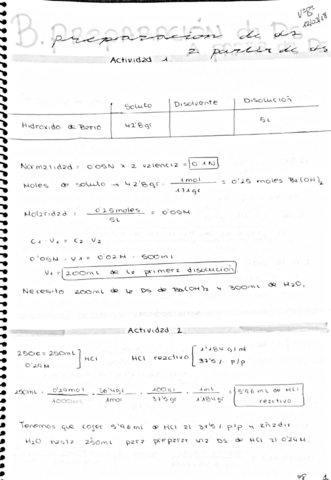 B. Preparación de Ds
preparación de ds
a partir de ds
Actividad 1.
Soluto Disolvente Disolución
Hidróxido de Bario 42'8gr 5L
Normalidad = 0'05N x 2 valencia = 0'1N
Moles de soluto → 42'8gr · 1mol / 171gr = 0'25 moles Ba(OH)2
Molaridad = 0'25moles / 5L = 0'05M
C1 · V1 = C2 · V2
0'05M · V1 = 0'02M · 500ml
V1 = 200ml de la primera disolución
Necesito 200ml de la Ds de Ba(OH)2 y 300ml de H2O.
Actividad 2.
250cc = 250ml
0'24M
HCl
HCl reactivo
1'184 g/ml
37'5% p/p
250ml · 0'24mol / 1000ml · 36'4gr / 1mol · 100gr / 37'5gr · 1ml / 1'184gr = 5'96 ml de HCl reactivo
Tenemos que coger 5'96 ml de HCl al 37'5% p/p y añadir
H2O hasta 250ml para preparar una Ds de HCl al 0'24M.